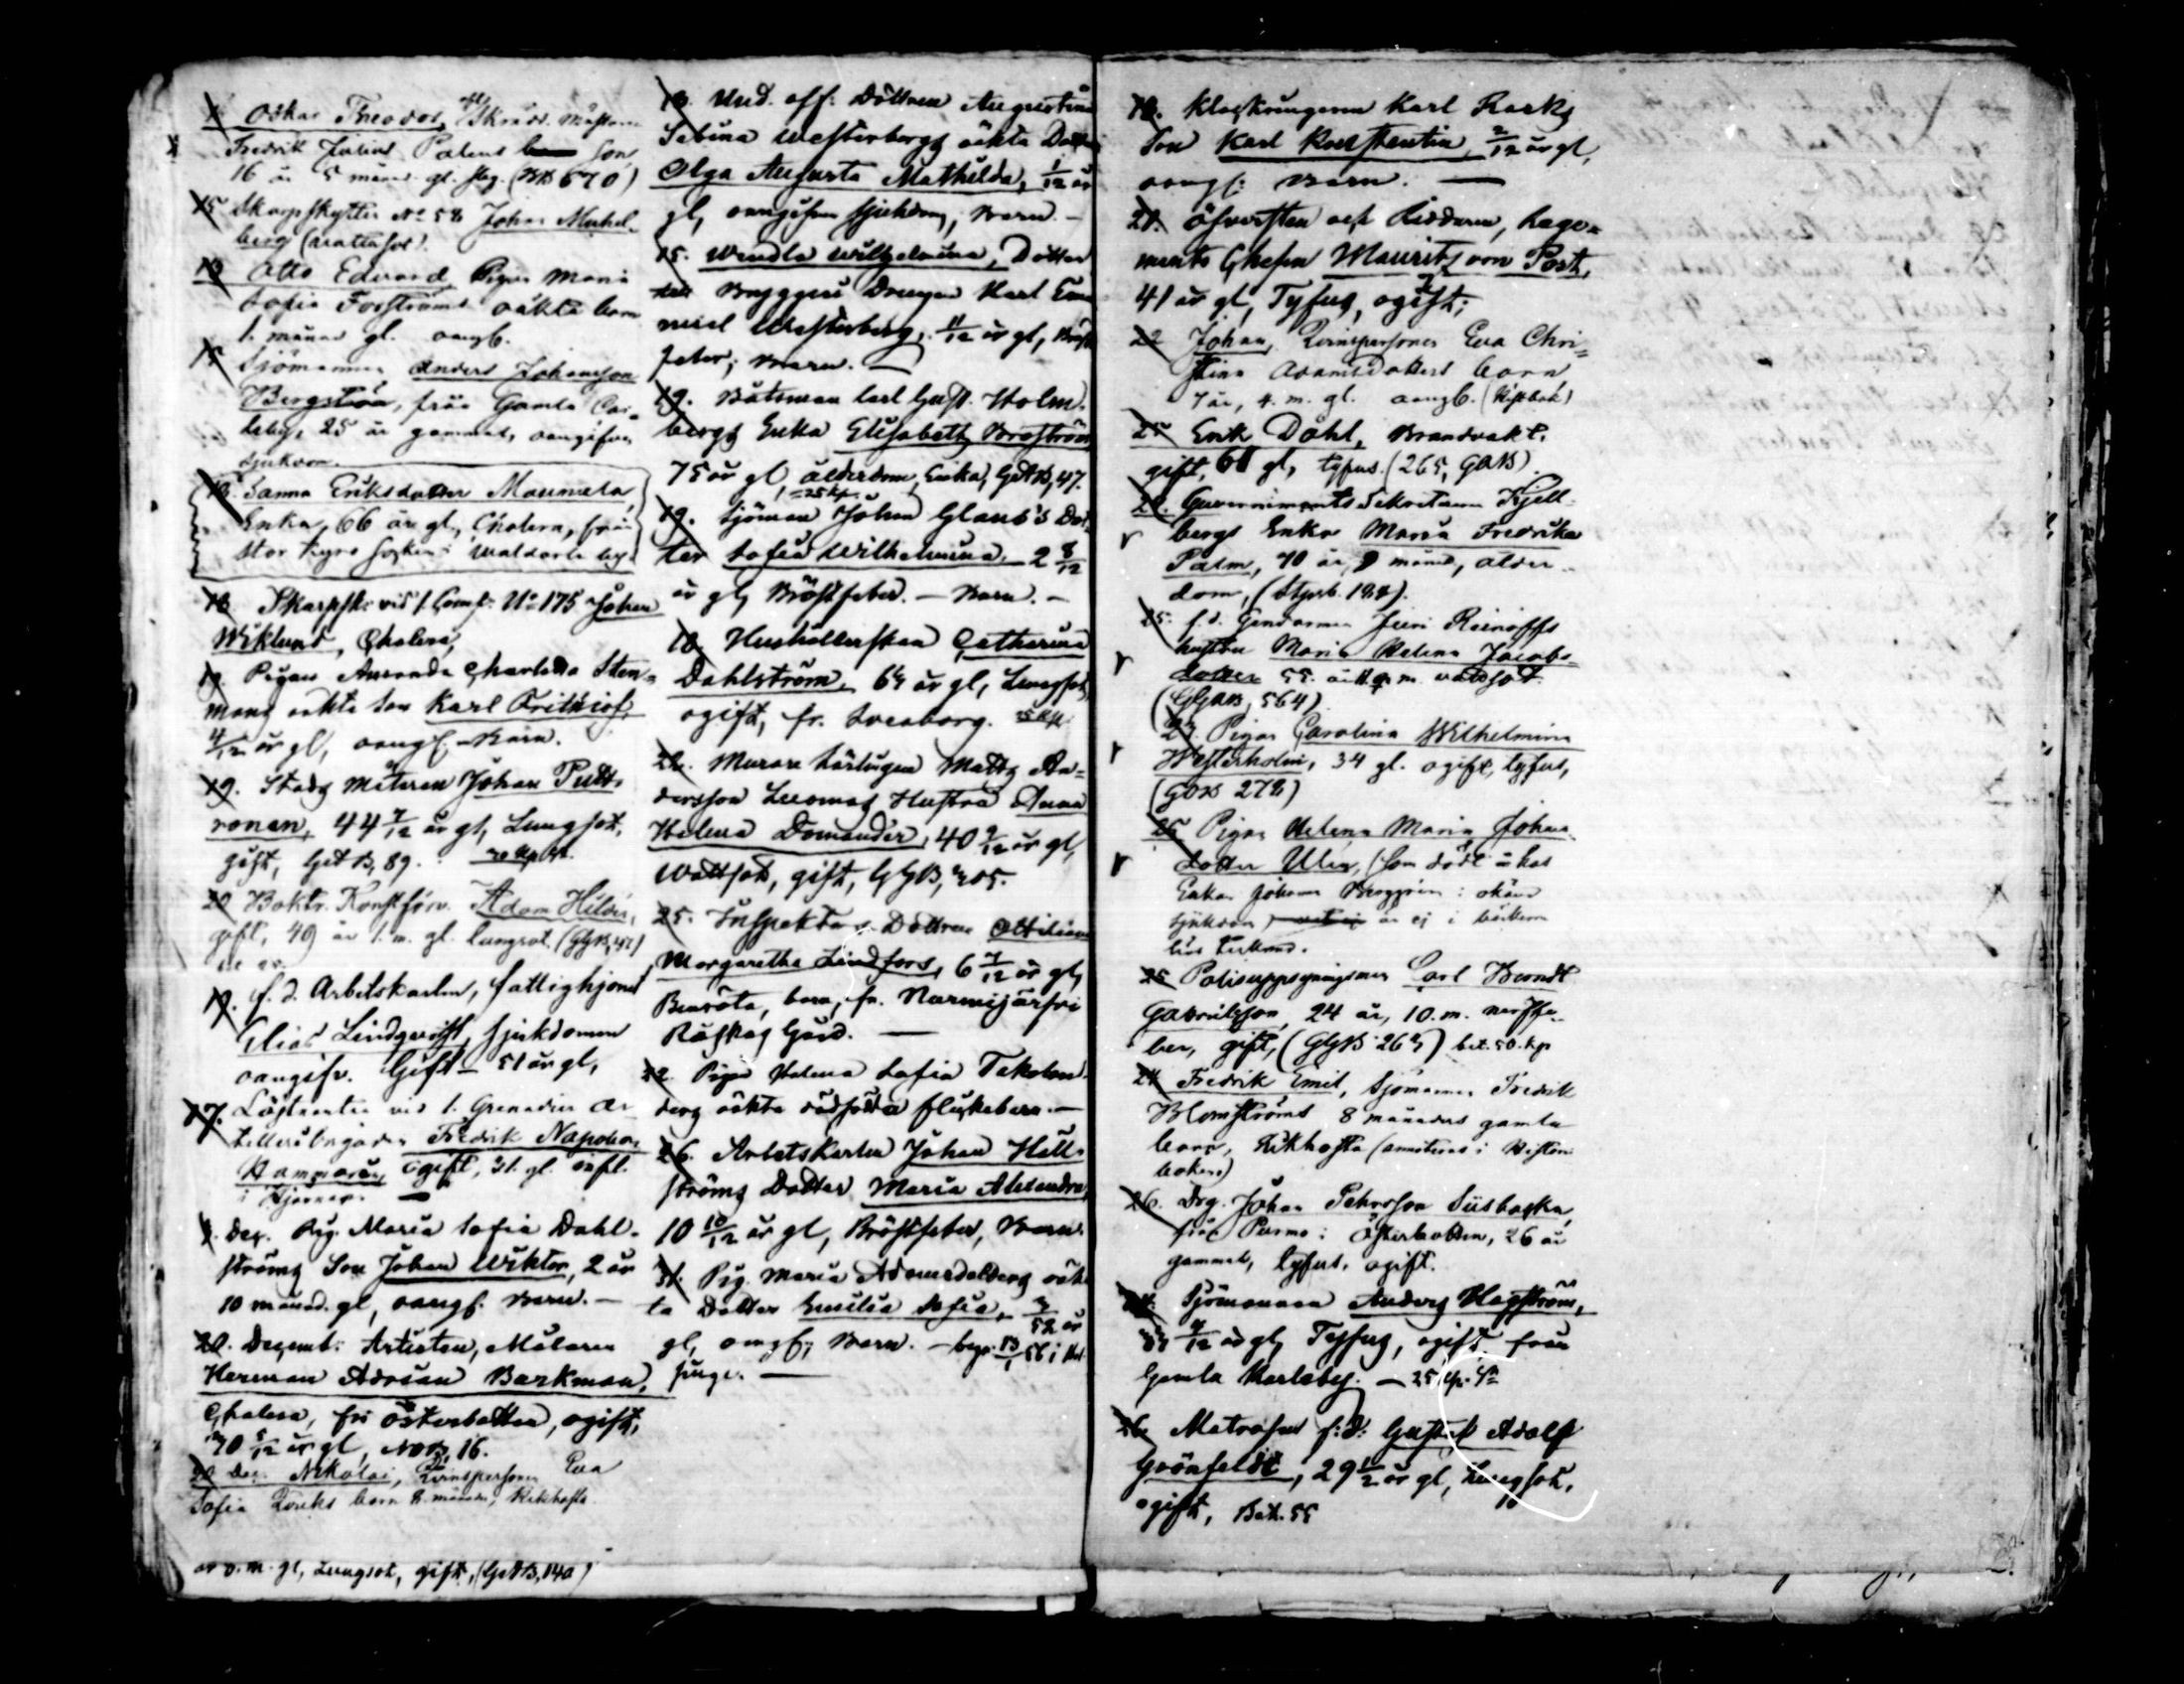 Oskar Theodor, Skrädd. Mästaren
Fredrik Julius Palens son
16 år 5 mån. gl. slag. (BB 670)
15 Skarpskytten No 58 Johan Michel-
berg (Wattusot).
13 Otto Edvard, Pigan Maria
Sofia Forströms oäkta barn
1. månad gl. oangb.
15 Sjömannen Anders Johansson
Bergström, från Gamla Car-
leby, 25 år gammal, oangifven
sjukdom.
18. Sanna Eriksdotter Maunula,
Enka, 66 år gl, Cholera, från
Stor Kyro Socken
18 Skarpsk. vid 1 Comp. No 175 Johan
Wiklund, Cholera,
19. Pigan Amanda Charlotta Sten-
mans oäkta son Karl Frithiof,
4/12 år gl, oangf. Barn.
19. Stads Mätaren Johan Putt-
ronen, 44 7/12 år gl, Lungsot,
gift, GetB, 89.
20 Boktr. Konstförv. Adam Hildén,
gift, 49 år 1. m. gl. lungsot. (GgB, 47)
19. f. d. Arbetskarlen, fattighjonet
Elias Lindqvist, sjukdomen
oangifv. Gift - 51 år gl,
17. Löjtnanten vid 1. Grenadier Ar-
tilleribrigaden Fredrik Napoleon
Hammarén, ogift, 31. gl. infl.
i Hjernan.
9. Dec. Pig. Maria Sofia Dahl-
ströms Son Johan Wiktor, 2 år
10 månad. gl, oangf. Barn. -
20. Decemb: Artisten, Målaren
Herman Adrian Barkman,
Cholera, fr. Österbotten, ogift,
5/12 år gl, NoB, 16.
20 Dec. Nikolai, Qvinspersonen Eva
Sofia barn 8. månader, Kikhosta
år 8. m. gl, Lungsot, gift, (GetB, 140)
13. Und. off. Dottren Augustina
Sabina Westerbergs oäkta Dotter
Olga Augusta Mathilda, 1/12 år
gl, oangifven sjukdom, Barn. -
15. Wendla Wilhelmina, Dotter
till Bryggeri Drengen Karl Ema-
nuel Westerberg, 11/12 år gl, Bröst
feber; Barn. -
19. Båtsman Carl Gust. Holm-
bergs Enka Elisabeth Broström
75 år gl, ålderdom, Enka, GetB, 47.
19. Sjöman Johan Glans's Dot-
ter Sofia Wilhelmina. 2 8/12
år gl, Bröstfeber. - Barn. -
18. Hushållerskan Catharina
Dahlström, 64 år gl, Lungsot,
ogift, fr. Sveaborg.
22. Murare Lärlingen Matts An-
dersson Hustru Anna
Helena Domander, 40 9/12 år gl,
Wattsot, gift, GgB, 205.
25. Inspektor Dottren Ottiliana
Margaretha Lindfors, 6 7/12 år gl,
Benröta, barn, fr. Nurmijärfvi
Råskog Gård. -
22 Pigan Helena Sofia Takolan-
ders oäkta dödfödda flickebarn. -
26. Arbetskarlen Johan Häll-
ströms Dotter Maria Alexandra,
10 10/12 år gl, Bröstfeber, Barn.
31. Pig. Maria Adamsdotters oäk-
ta Dotter Emilia Sofia, 3/52 år
gl, oangf; Barn. - begr. 13/1 56 i Hel
singe. -
18. Klockringaren Karl Rosks
Son Karl Konstantin, 2/12 år gl,
oangf: Barn. -
21. Öfversten och Riddaren, Rege-
ments Chefen Maurits von Post,
41 år gl, Tyfus, ogift;
22 Johan, Qvinspersonen Eva Chri-
stina Adamsdotters barn
7 år, 4. m. gl. oangb. (Histbok)
25 Erik Dahl, Brandvakt.
gift, 61 gl, tyfus. (265, GAB)
24. Guvernements Sekreteraren Kjell-
bergs Enka Maria Fredrika
Palm, 70 år, 9 månad, ålder-
dom, (Styrb. 192).
25. f. d. Gendarmen Juri Reinoffs
hustru Maria Helena Jacobs-
dotter 55. år 11 m. vattsot.
(GgAB, 564)
27. Pigan Carolina Wilhelmina
Westerholm, 34 gl. ogift, tyfus,
(GAB 272)
25 Pigan Helena Maria Johans-
dotter Ulin, (Som dödt hos
Enkan Johanna Berggren: okänd
sjukdom) är ej i böckern
25 Polisuppsyningsman Carl Berndt
Gabrielsson, 24 år, 10. m. nervfe-
ber, gift, (GgB 267) bet. 50. kp
24 Fredrik Emil, Sjömannen Fredrik
Blomströms 8 månaders gamla
barn, Kikhosta (annoteras i Histori
boken)
26. Drg. Johan Pehrsson Siisbacka,
från Purmo i Österbotten, 26 år
gammal, tyfus, ogift.
Sjömannen Anders Hagström,
7/12 år gl, Tyfus, ogift, från
Gamla Karleby. - 25 kp. Sr
26. Matrosen f: d: Gustaf Adolf
Grönfeldt, 29 1/2 år gl, Lungsot,
ogift, Båt. 55